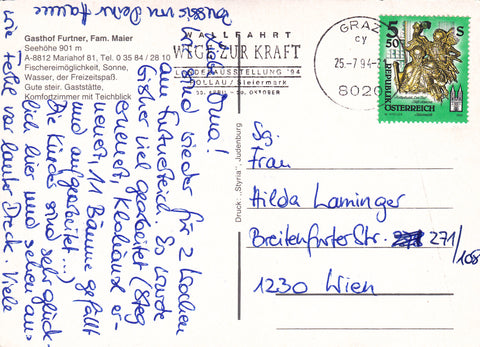 Gasthof Furtner, Fam. Maier
Seehöhe 901 m
A-8812 Mariahof 81, Tel. 0 35 84 / 28 10
Fischereimöglichkeit, Sonne,
Wasser, der Freizeitspaß.
Gute steir. Gaststätte,
Komfortzimmer mit Teichblick
WALLFAHRT
WEGE ZUR KRAFT
LANDESAUSSTELLUNG '94
PÖLLAU / Steiermark
30. APRIL - 30. OKTOBER
GRAZ
cy
25.-7.94-2
8020
5 50 S
REPUBLIK
ÖSTERREICH
Druck: „Styria“, Judenburg
Liebe Oma!
Wir sind wieder für 2 Wochen
am Furtnerteich. Es wurde
bisher viel gearbeitet (Steg
erneuert, Klohäusl er-
neuert, 11 Bäume gefällt
und aufgearbeitet ...)
Die Kinder sind sehr glück-
lich hier und sehen aus
wie Teufel vor lauter Dreck. Viele
Bussis von Deiner
Sg.
Frau
Hilda Laminger
Breitenfurter Str. 271/
108
1230 Wien